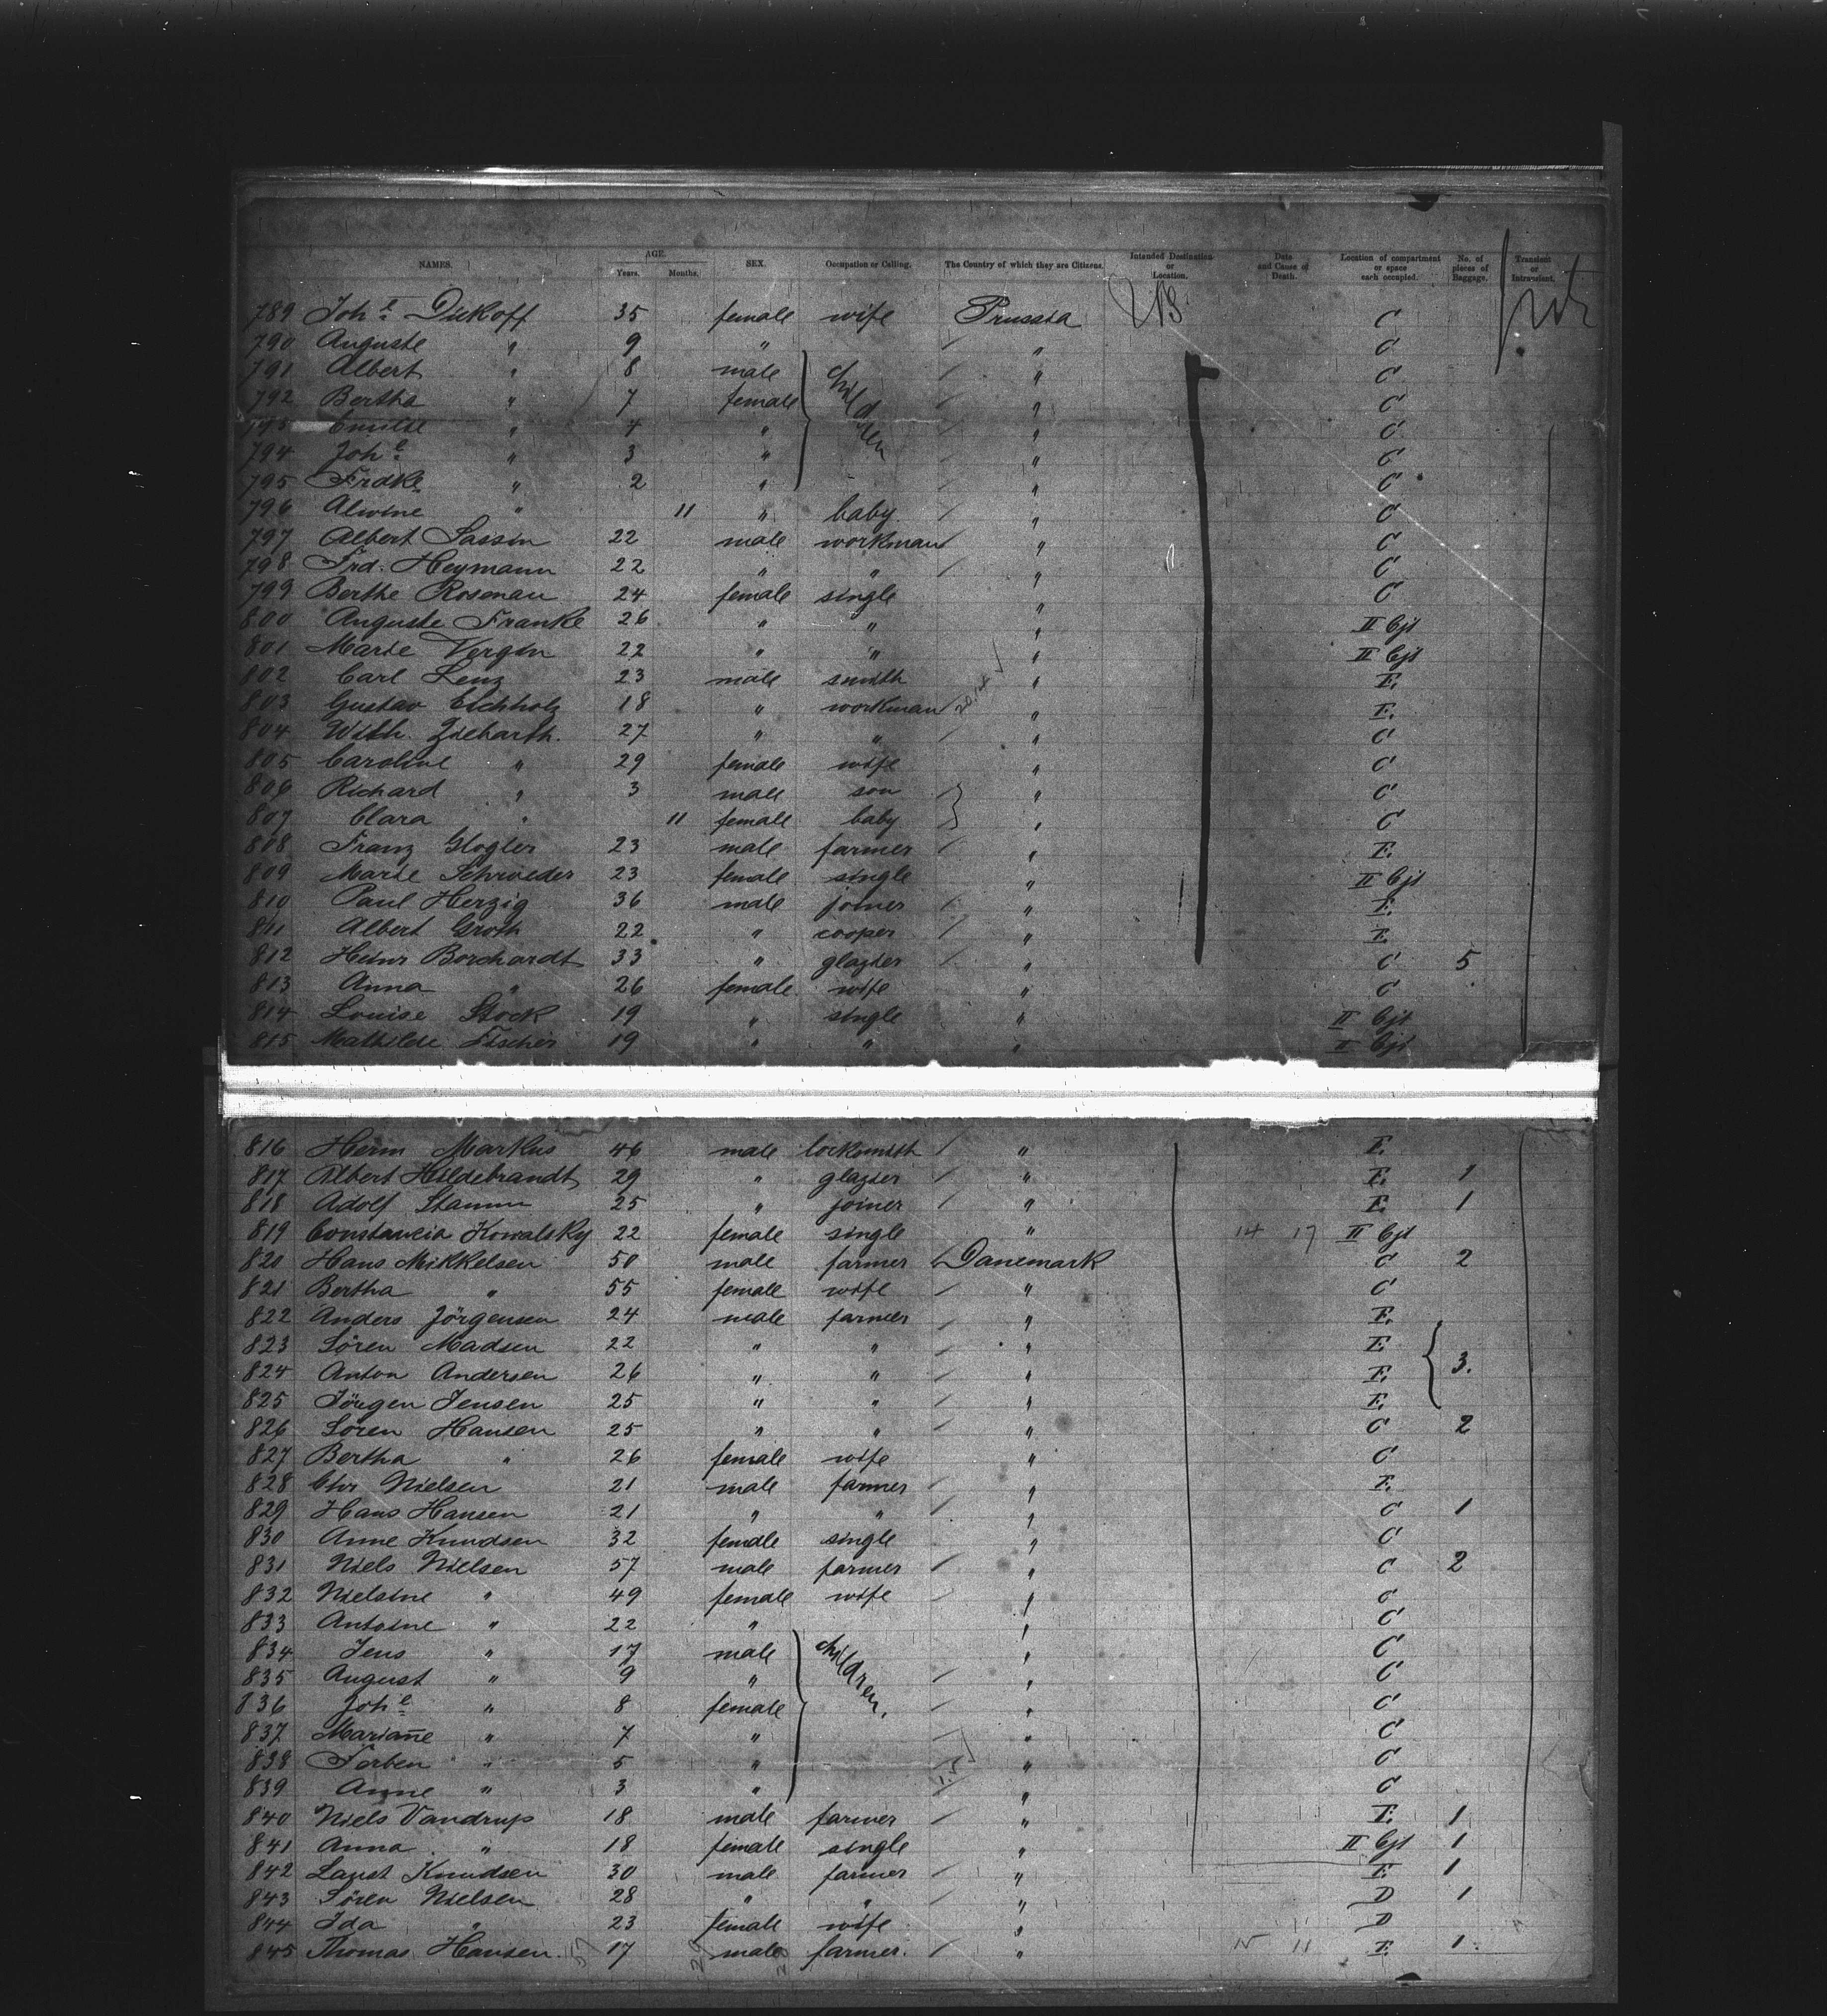 NAMES. AGE. Years. Months. SEX. Occupation or Calling. The Country of which they are Citizens. Intended Destination or Location. Date and Cause of Death. Location of compartment or space each occupied. No. of pieces of Baggage. Transient or Intransient.
789 Joh<u>e</u> Dickoff 35 female wife Prussia C
790 Auguste " 9 " " C
791 Albert " 8 male children " C
792 Bertha " 7 female " C
793 Emilie " 4 " " C
794 Joh<u>e</u> " 3 " " C
795 Frdke " 2 " " C
796 Alwine " 11 " baby " C
797 Albert Sassin 22 male workman " C
798 Frd. Heymann 22 " " " C
799 Berthe Rosenau 24 female single " C
800 Auguste Franke 26 " " " II Cjt
801 Marie Vergin 22 " " " II Cjt
802 Carl Lenz 23 male smith " E.
803 Gustav Eichholz 18 " workman " E.
804 Wilh. Ziebarth. 27 " " " C
805 Caroline " 29 female wife " C
806 Richard " 3 male son " C
807 Clara " 11 female baby " C
808 Franz Glogler 23 male farmer " E.
809 Marie Schroeder 23 female single " II Cjt
810 Paul Herzig 36 male joiner " E.
811 Albert Groth 22 " cooper " E
812 Heinr Borchardt 33 " glazier " C 5
813 Anna " 26 female wife " C
814 Louise Stock 19 " single " II Cjt
815 Mathilde Fischer 19 " " " II Cjt
816 Herm Markus 46 male locksmith " E.
817 Albert Hildebrandt 29 " glazier " E. 1
818 Adolf Stamm 25 " joiner " E. 1
819 Constancia Kowalsky 22 female single " 14 17 II Cjt
820 Hans Mikkelsen 50 male farmer Danemark C 2
821 Bertha " 55 female wife " C
822 Anders Jörgensen 24 male farmer " E.
823 Sören Madsen 22 " " " E
824 Anton Andersen 26 " " " E. 3.
825 Jörgen Jensen 25 " " " E.
826 Sören Hansen 25 " " " C 2
827 Bertha " 26 female wife " C
828 Chr Nielsen 21 male farmer " E.
829 Hans Hansen 21 " " " C 1
830 Anne Knudsen 32 female single " C
831 Niels Nielsen 57 male farmer " C 2
832 Nielsine " 49 female wife " C
833 Antoine " 22 " " C
834 Jens " 17 male children. " C
835 August " 9 " " C
836 Joh<u>e</u> " 8 female " C
837 Mariañe " 7 " " C
838 Torben " 5 " " C
839 Anne " 3 " " C
840 Niels Vandrup 18 male farmer " E. 1
841 Anna " 18 female single " II Cjt 1
842 Laust Knudsen 30 male farmer " E 1
843 Sören Nielsen 28 " " " D 1
844 Ida " 23 female wife " D
845 Thomas Hansen 17 male farmer. " 15 11 E 1.